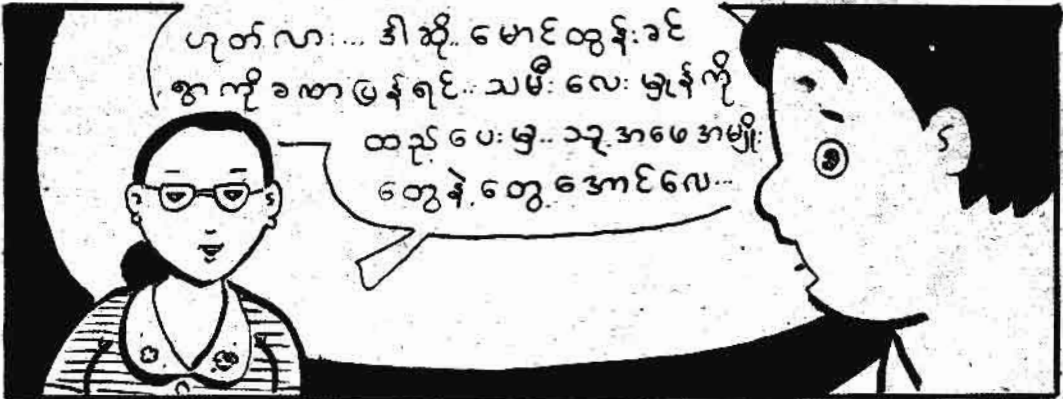 ဟုတ်လား... ဒါဆို.. မောင်ထွန်းခင်
ရွာကိုခဏပြန်ရင်.. သမီးလေးမျှန်ကို
ထည့်ပေးမှ.. သူ့အဖေအမျိုး
တွေနဲ့တွေ့အောင်လေ...